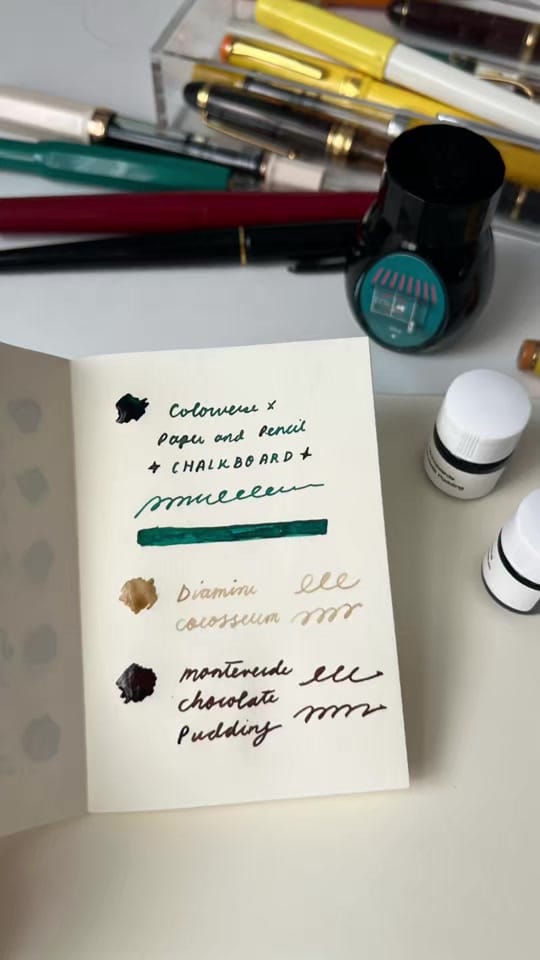 Colorverse x
Paper and Pencil
CHALKBOARD
Diamine
colosseum
monteverde
chocolate
Pudding
Pudding